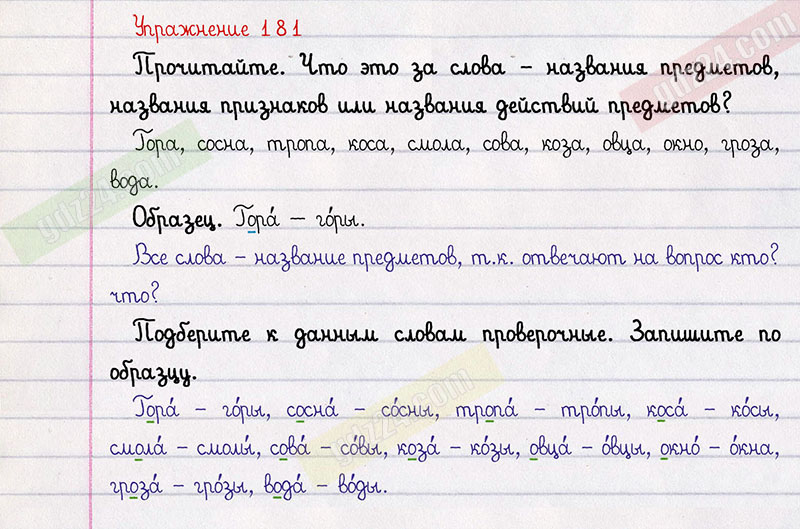 Упражнение 181
Прочитайте. Что это за слова – названия предметов,
названия признаков или названия действий предметов?
Гора, сосна, тропа, коса, смола, сова, коза, овца, окно, гроза,
вода.
Образец. Гора́ – го́ры.
Все слова – название предметов, т.к. отвечают на вопрос кто?
что?
Подберите к данным словам проверочные. Запишите по
образцу.
Гора́ – го́ры, сосна́ – со́сны, тропа́ – тро́пы, коса́ – ко́сы,
смола́ – смолы́, сова́ – со́вы, коза́ – ко́зы, овца́ – о́вцы, окно́ – о́кна,
гроза́ – гро́зы, вода́ – во́ды.
gdz24.com
gdz24.com
gdz24.com